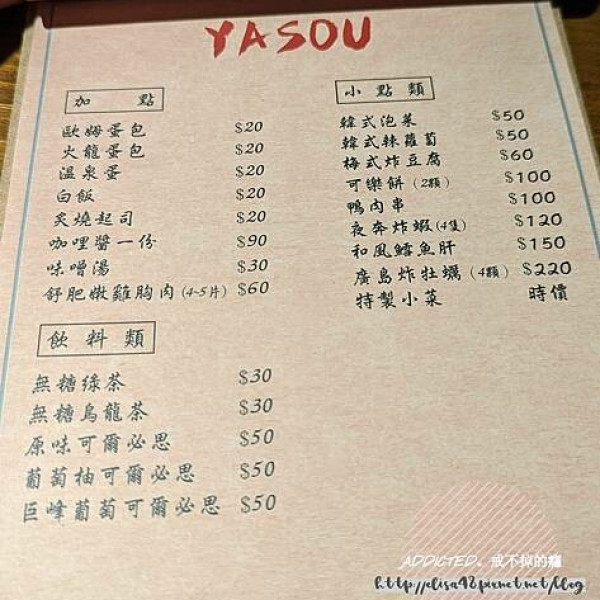 YASOU
加 點
歐姆蛋包 $20
火龍蛋包 $20
溫泉蛋 $20
白飯 $20
炙燒起司 $20
咖哩醬一份 $90
味噌湯 $30
舒肥嫩雞胸肉(4~5片) $60
飲料類
無糖綠茶 $30
無糖烏龍茶 $30
原味可爾必思 $50
葡萄柚可爾必思 $50
巨峰葡萄可爾必思 $50
小點類
韓式泡菜 $50
韓式辣蘿蔔 $50
梅式炸豆腐 $60
可樂餅(2顆) $100
鴨肉串 $100
夜奔炸蝦(4隻) $120
和風鱈魚肝 $150
廣島炸牡蠣(4顆) $220
特製小菜 時價
ADDICTED. 戒不掉的癮
http://elisa48pixnet.net/blog